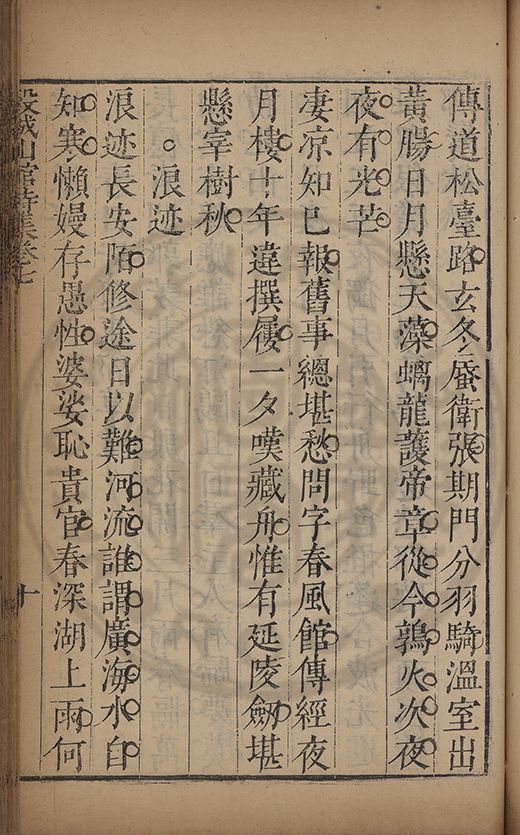 傳道松臺路玄冬蜃衛張期門分羽騎溫室出
黃腸日月懸天藻螭龍護帝章從今鶉火次夜
夜有光芒
凄凉知已報舊事總堪愁問字春風館傳經夜
月樓十年違撰屨一夕嘆藏舟惟有延陵劒堪
懸宰樹秋
浪迹
浪迹長安陌修途日以難河流誰謂廣海水自
知寒懶嫚存愚性婆娑恥貴官春深湖上雨何
穀城山館詩集卷七
十